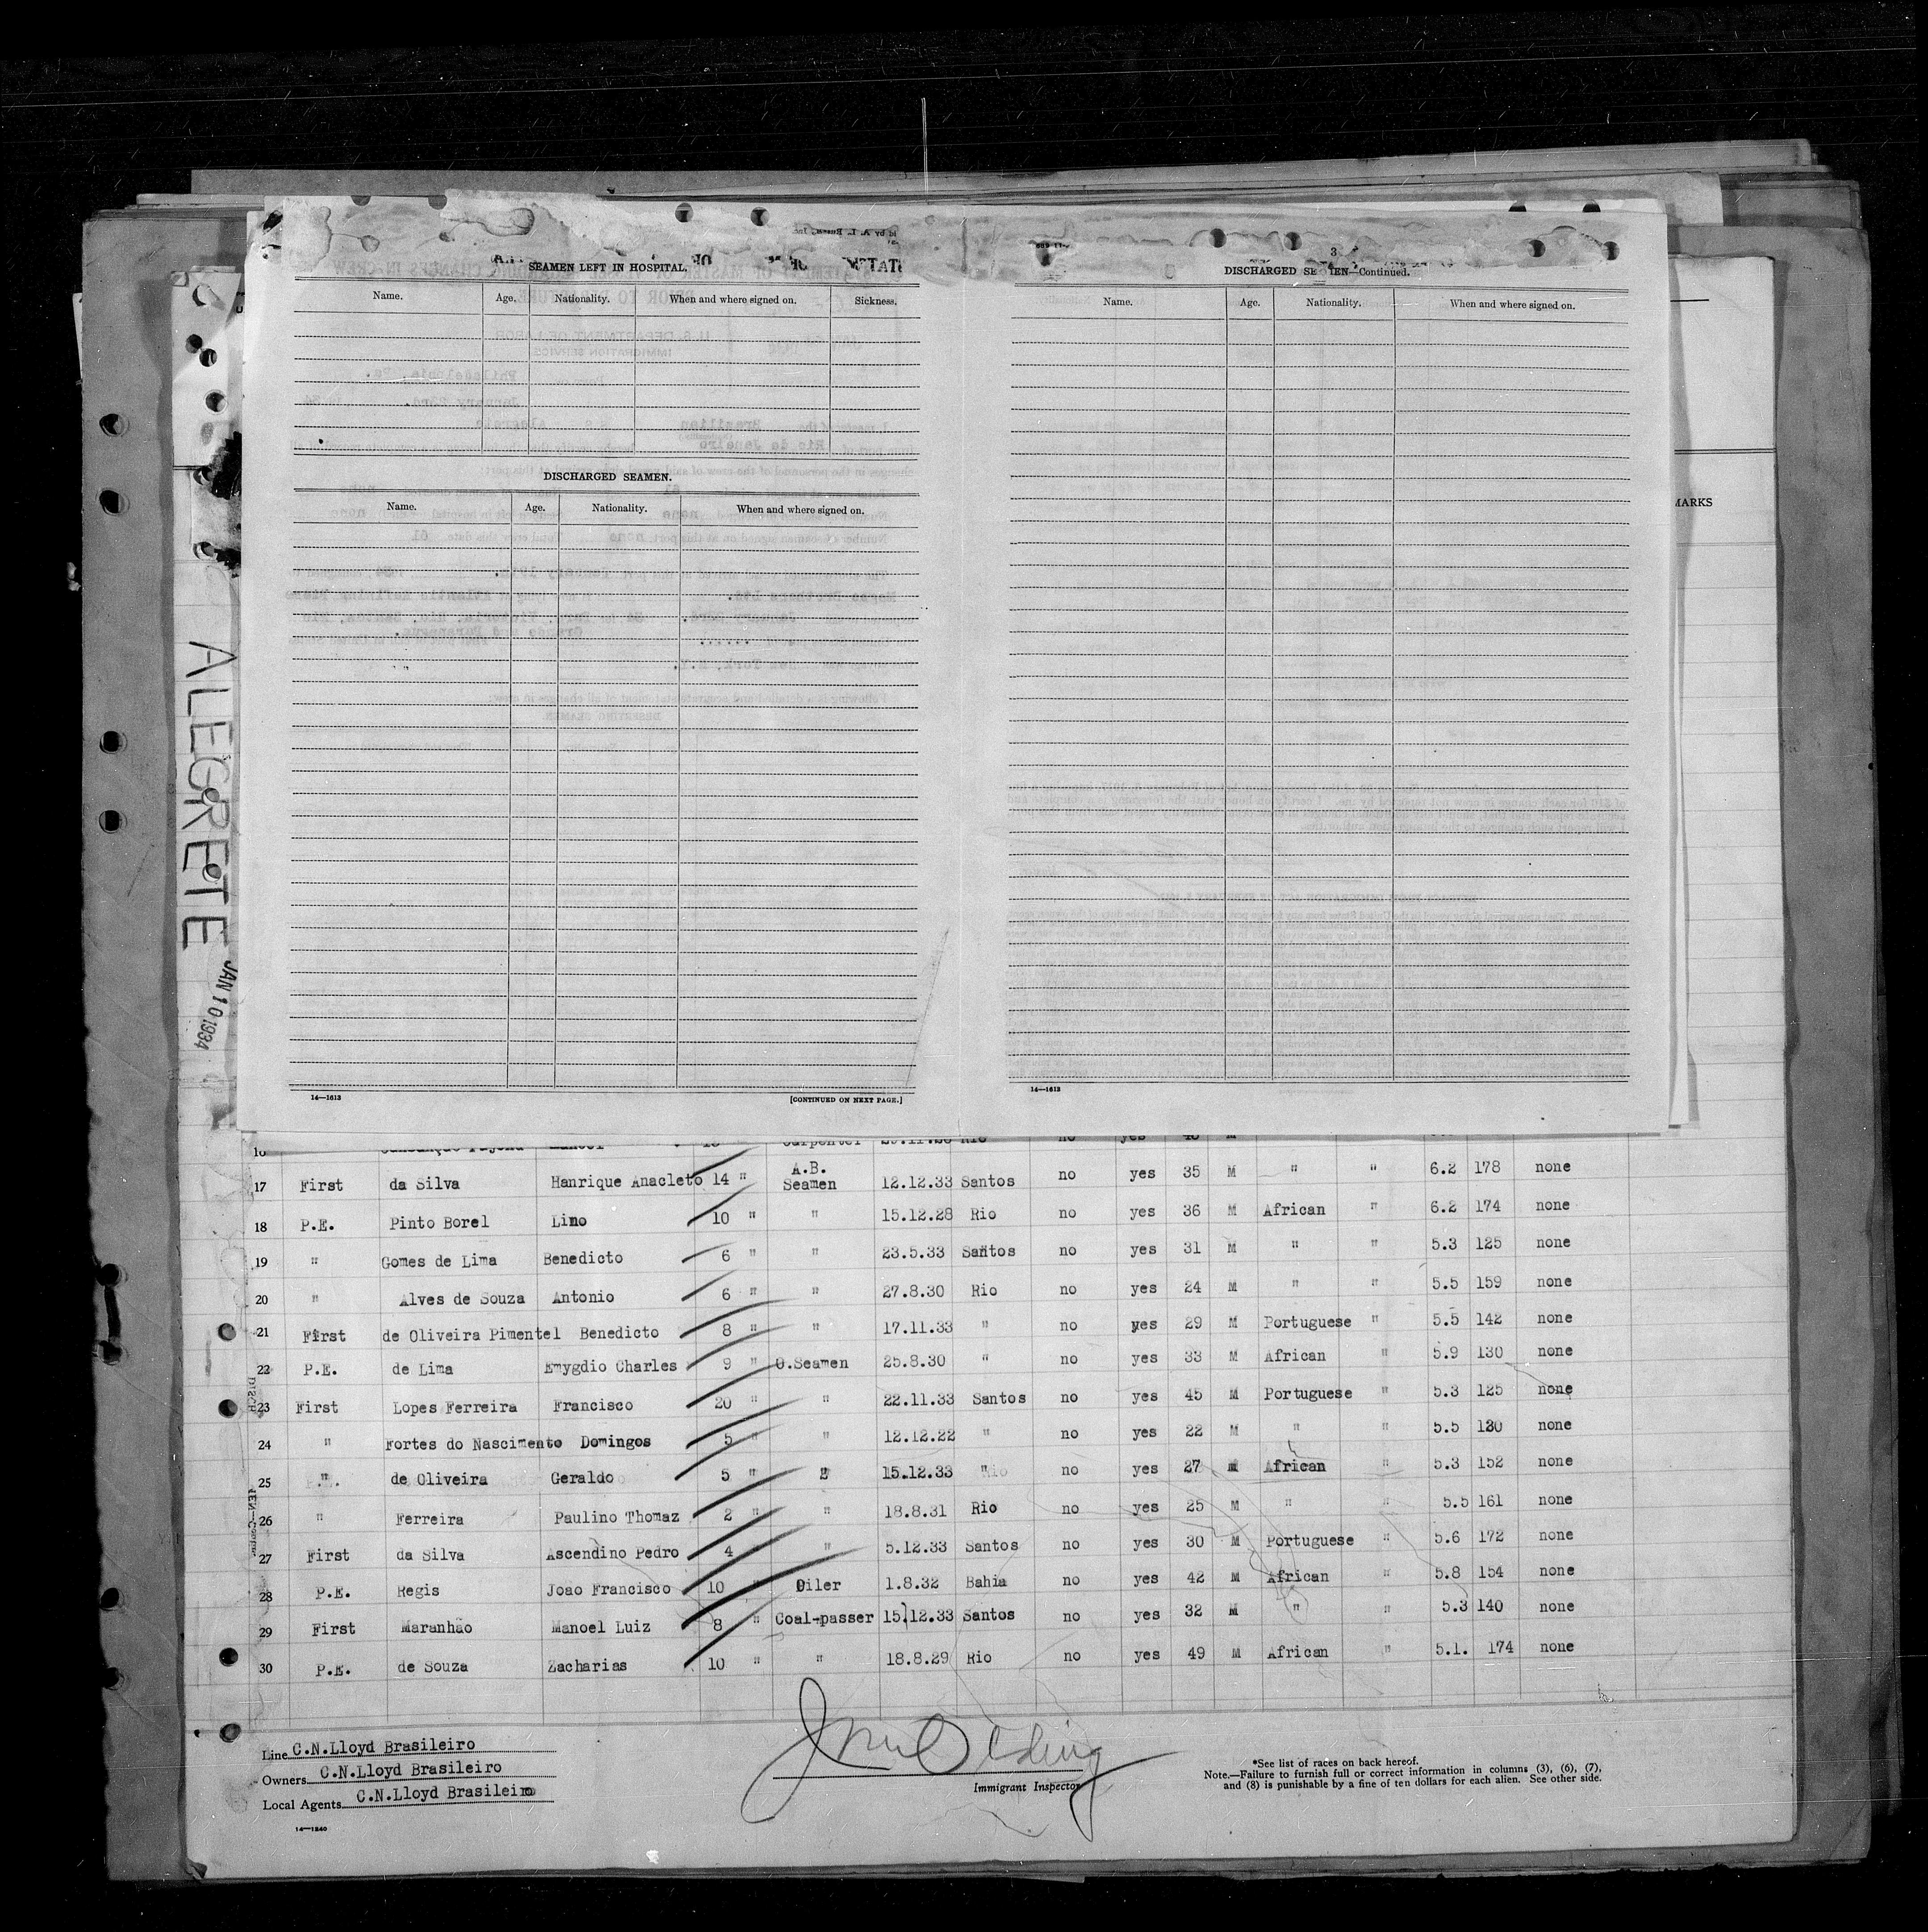 SEAMEN LEFT IN HOSPITAL.
Name. Age. Nationality. When and where signed on. Sickness.
DISCHARGED SEAMEN.
Name. Age. Nationality. When and where signed on.
14—1613 [CONTINUED ON NEXT PAGE.]
3
DISCHARGED SE EN—Continued.
Name. Age. Nationality. When and where signed on.
14—1613
MARKS
ALEGRETE
JAN 10 1934
16 Manoel Carpenter Rio no yes M
17 First da Silva Hanrique Anacleto 14 " A.B. Seamen 12.12.33 Santos no yes 35 M " " 6.2 178 none
18 P.E. Pinto Borel Lino 10 " " 15.12.28 Rio no yes 36 M African " 6.2 174 none
19 " Gomes de Lima Benedicto 6 " " 23.5.33 Santos no yes 31 M " " 5.3 125 none
20 " Alves de Souza Antonio 6 " " 27.8.30 Rio no yes 24 M " " 5.5 159 none
21 First de Oliveira Pimentel Benedicto 8 " " 17.11.33 " no yes 29 M Portuguese " 5.5 142 none
22 P.E. de Lima Emygdio Charles 9 " O.Seamen 25.8.30 " no yes 33 M African " 5.9 130 none
23 First Lopes Ferreira Francisco 20 " " 22.11.33 Santos no yes 45 M Portuguese " 5.3 125 none
24 " Fortes do Nascimento Domingos 5 " " 12.12.22 " no yes 22 M " " 5.5 130 none
25 " de Oliveira Geraldo 5 " " 15.12.33 " no yes 27 M African " 5.3 152 none
26 " Ferreira Paulino Thomaz 2 " " 18.8.31 Rio no yes 25 M " " 5.5 161 none
27 First da Silva Ascendino Pedro 4 " " 5.12.33 Santos no yes 30 M Portuguese " 5.6 172 none
28 P.E. Regis Joao Francisco 10 " Oiler 1.8.32 Bahia no yes 42 M African " 5.8 154 none
29 First Maranhão Manoel Luiz 8 " Coal-passer 15.12.33 Santos no yes 32 M " " 5.3 140 none
30 P.E. de Souza Zacharias 10 " " 18.8.29 Rio no yes 49 M African " 5.1. 174 none
Line C.N.Lloyd Brasileiro
Owners C.N.Lloyd Brasileiro
Local Agents C.N.Lloyd Brasileiro
14—1240
Immigrant Inspector
*See list of races on back hereof.
Note.—Failure to furnish full or correct information in columns (3), (6), (7),
and (8) is punishable by a fine of ten dollars for each alien. See other side.